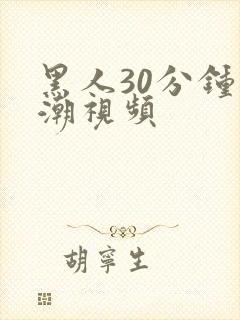 黑人30分鍾
潮視頻
胡寧生